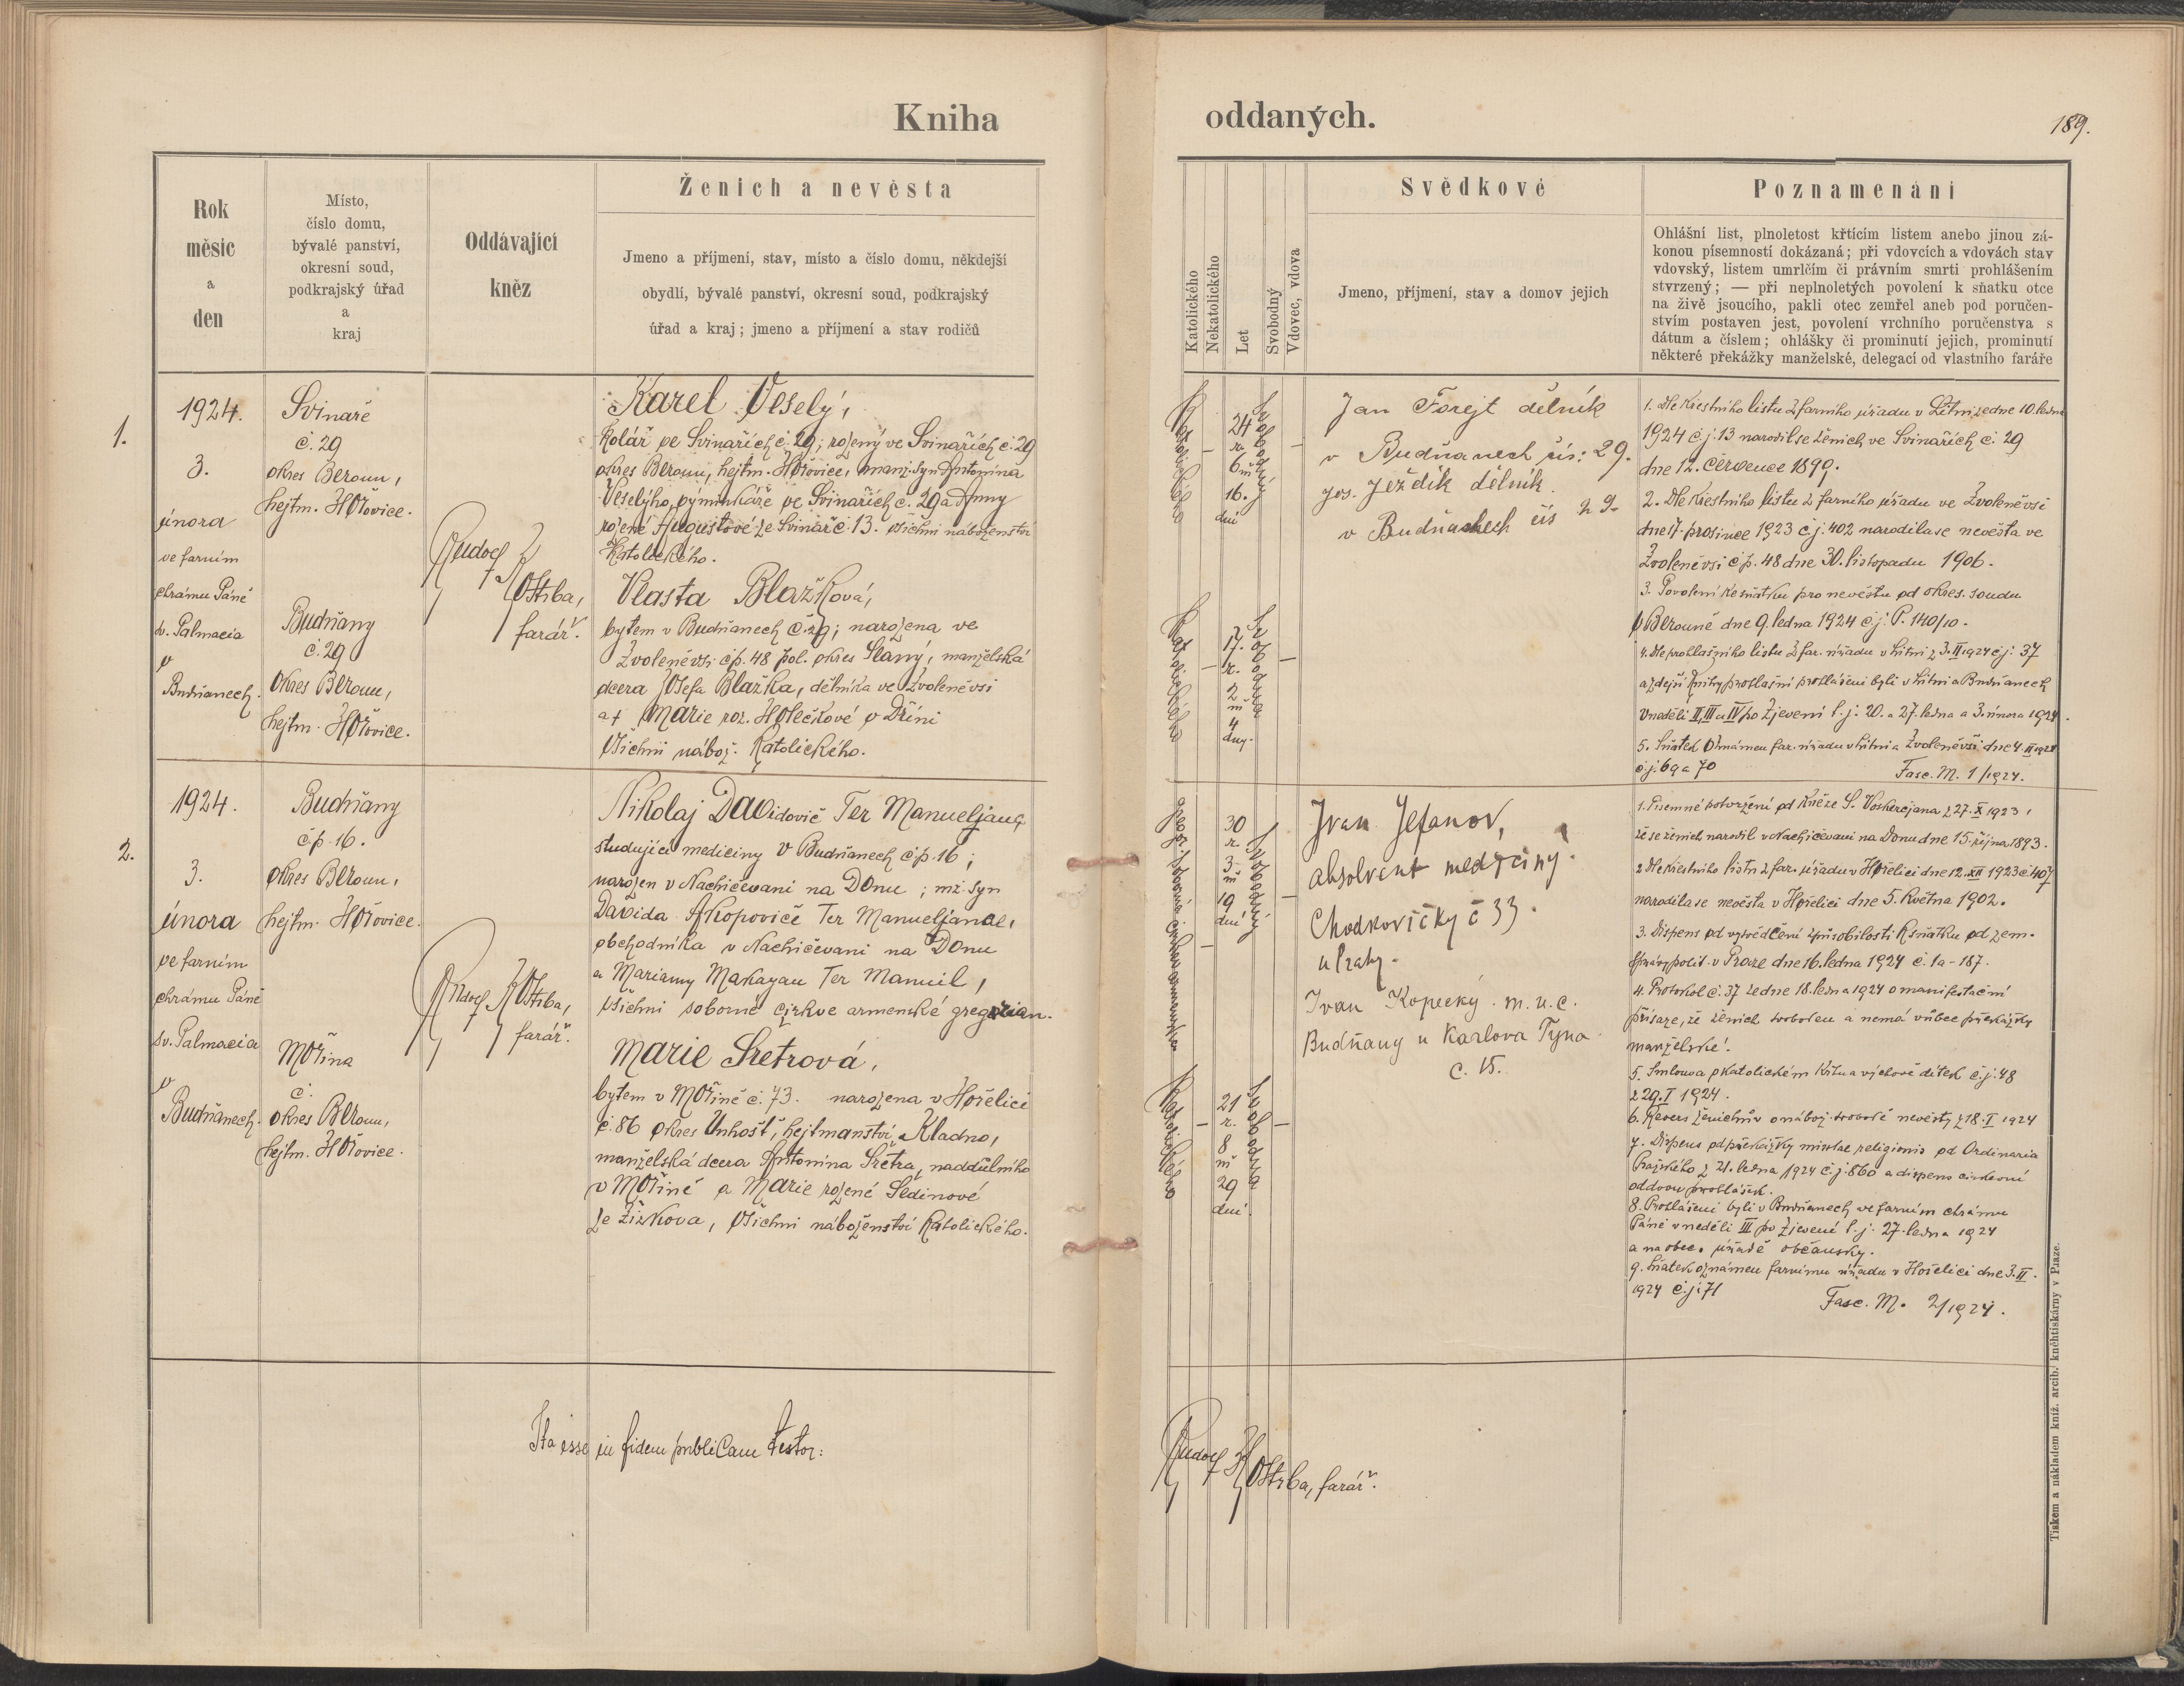 Kniha
oddaných.
189.
Rok
měsíc
a
den
Místo,
číslo domu,
bývalé panství,
okresní soud,
podkrajský úřad
a
kraj
Oddávající
kněz
Ženich a nevěsta
Jmeno a příjmení, stav, místo a číslo domu, někdejší
obydlí, bývalé panství, okresní soud, podkrajský
úřad a kraj; jmeno a příjmení a stav rodičů
Katolického
Nekatolického
Let
Svobodný
Vdovec, vdova
Svědkové
Jmeno, příjmení, stav a domov jejich
Poznamenání
Ohlášní list, plnoletost křtícím listem anebo jinou zá-
konou písemností dokázaná; při vdovcích a vdovách stav
vdovský, listem umrlčím či právním smrti prohlášením
stvrzený; — při neplnoletých povolení k sňatku otce
na živě jsoucího, pakli otec zemřel aneb pod poručen-
stvím postaven jest, povolení vrchního poručenstva s
dátum a číslem; ohlášky či prominutí jejich, prominutí
některé překážky manželské, delegací od vlastního faráře
1.
1924.
3.
února
ve farním
chrámu Páně
sv. Palmacia
v
Budňanech.
Svinaře
č. 29
okres Beroun,
hejtm. Hořovice.
Budňany
č. 29
Okres Beroun,
hejtm. Hořovice.
Rudolf Kostrba,
farář.
Karel Veselý,
kolář ve Svinařích č. 29; rozený ve Svinařích č. 29
okres Beroun, hejtm. Hořovice, manž. syn Antonína
Veselýho, výminkáře ve Svinařích č. 29 a Anny
rozené Augustové ze Svinař č. 13. Všichni náboženství
Katolického.
Vlasta Blažková,
bytem v Budňanech č. 29; narozena ve
Zvoleněvsi č.p. 48 pol. okres Slaný, manželská
dcera Josefa Blažka, dělníka ve Zvoleněvsi
a † Marie roz. Holečkové v Dříni
Všichni nábož. Katolického.
Katolického
24
r.
6 m
16.
dní
Svobodný
Katolického
17.
r.
2
m
4
dny.
Svobodná
Jan Forejt dělník
v Budňanech čís: 29.
Jos. Ježdík dělník
v Budňanech čís 29
1. Dle křestního listu z farního úřadu v Litni ze dne 10. ledna
1924 č.j. 13 narodil se ženich ve Svinařích č. 29
dne 12. července 1899.
2. Dle křestního listu z farního úřadu ve Zvoleněvsi
dne 17. prosince 1923 č.j. 402 narodila se nevěsta ve
Zvoleněvsi č.p. 48 dne 30. listopadu 1906.
3. Povolení ke sňatku pro nevěstu od okres. soudu
v Berouně dne 9. ledna 1924 č.j. P. 140/10.
4. Dle prohlašního listu z far. úřadu v Litni z 3. II 1924 č.j. 37
a zdejší knihy prohlašní prohlášeni byli v Litni a Budňanech
v neděli II, III a IV po Zjevení t.j. 20. a 27. ledna a 3. února 1924.
5. Sňatek oznámen far. úřadu v Litni a Zvoleněvsi dne 4. II 1924
č.j. 69 a 70
Fasc. M. 1/1924.
2.
1924.
3.
února
ve farním
chrámu Páně
Sv. Palmacia
v
Budňanech.
Budňany
č.p. 16.
okres Beroun,
hejtm. Hořovice.
Mořina
č.
okres Beroun,
hejtm. Hořovice.
Rudolf Kostrba,
farář.
Nikolaj Davidovič Ter Manueljanc
studující mediciny v Budňanech č.p. 16;
narozen v Nachičevani na Donu; mž. syn
Davida Akopoviče Ter Manueljance,
obchodníka v Nachičevani na Donu
a Mariamy Makayan Ter Manuil,
všichni soborné církve armenské gregorian.
Marie Sretrová,
bytem v Mořině č. 73. narozena v Hořelici
č. 86 okres Unhošť, hejtmanství Kladno,
manželská dcera Antonína Sretra, naddůlního
v Mořině a Marie rozené Šedinové
ze Žižkova, všichni náboženství Katolického.
30
r.
3
m
19
dní
Svobodný
Katolického
21
r.
8
m
29
dní.
Svobodná
Ivan Jefanov,
absolvent medyciny.
Chodkovičky č 33.
u Prahy.
Ivan Kopecký. m.u.c.
Budňany u Karlova Týna
č. 15.
1. Písemné potvrzení od kněze S. Voskerejana z 27. X 1923,
že se ženich narodil v Nachičevani na Donu dne 15. října 1893.
2. Dle křestního listu z far. úřadu v Hořelici dne 12. XII 1923 č 407
narodila se nevěsta v Hořelici dne 5. května 1902.
3. Dispens od vysvědčení způsobilosti k sňatku od zem.
správy polit. v Praze dne 16. ledna 1924 č. 1a - 187.
4. Protokol č. 37 ze dne 18. ledna 1924 o manifestační
přísaze, že ženich svoboden a nemá vůbec překážky
manželské.
5. Smlouva o katolickém křtu a výchově dítek č.j. 48
z 29. I 1924.
6. Revers ženichův o nábož. svobodě nevěsty z 18. I 1924
7. Dispens od překážky mixtae religionis od Ordinaria
Pražského z 21. ledna 1924 č.j. 860 a dispens církevní
od dvou prohlášek.
8. Prohlášeni byli v Budňanech ve farním chrámu
Páně v neděli III po Zjevení t.j. 27. ledna 1924
a na obec. úřadě občansky.
9. Sňatek oznámen farnímu úřadu v Hořelici dne 3. II.
1924 č.j. 71
Fasc. M. 2/1924.
Ita esse in fidem publicam testor:
Rudolf Kostrba, farář.
Tiskem a nákladem kníž. arcib. kněhtiskárny v Praze.